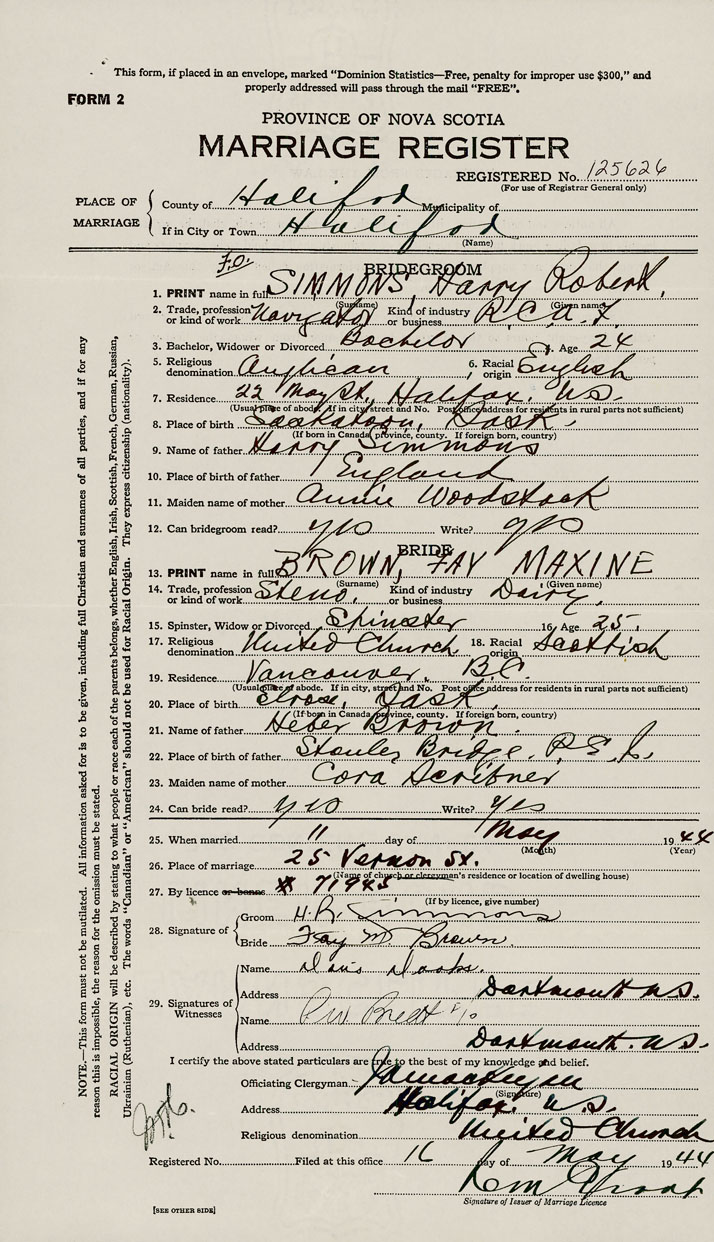 This form, if placed in an envelope, marked “Dominion Statistics—Free, penalty for improper use $300,” and
properly addressed will pass through the mail “FREE”.
FORM 2
PROVINCE OF NOVA SCOTIA
MARRIAGE REGISTER
REGISTERED No. 125626
(For use of Registrar General only)
PLACE OF MARRIAGE
County of Halifax Municipality of
If in City or Town Halifax
(Name)
F.O.
BRIDEGROOM
1. PRINT name in full SIMMONS, Harry Robert,
(Surname) (Given name)
2. Trade, profession or kind of work Navigator Kind of industry or business R.C.A.F
3. Bachelor, Widower or Divorced Bachelor 4. Age 24
5. Religious denomination Anglican 6. Racial origin English
7. Residence 22 May St., Halifax, N.S.
(Usual place of abode. If in city, street and No. Post office address for residents in rural parts not sufficient)
8. Place of birth Saskatoon, Sask.
(If born in Canada, province, county. If foreign born, country)
9. Name of father Harry Simmons
10. Place of birth of father England
11. Maiden name of mother Annie Woodstock
12. Can bridegroom read? yes Write? yes
BRIDE
13. PRINT name in full BROWN, FAY MAXINE
(Surname) (Given name)
14. Trade, profession or kind of work Steno. Kind of industry or business Dairy.
15. Spinster, Widow or Divorced Spinster 16. Age 25.
17. Religious denomination United Church 18. Racial origin Scottish
19. Residence Vancouver, B.C.
(Usual place of abode. If in city, street and No. Post office address for residents in rural parts not sufficient)
20. Place of birth Elrose, Sask.
(If born in Canada, province, county. If foreign born, country)
21. Name of father Heber Brown.
22. Place of birth of father Stanley Bridge, P.E.I.
23. Maiden name of mother Cora Scribner
24. Can bride read? yes Write? yes
25. When married 11 day of May 1944
(Month) (Year)
26. Place of marriage 25 Vernon St.
(Name of church or clergyman's residence or location of dwelling house)
27. By licence or banns # 71945
(If by licence, give number)
28. Signature of
Groom H.R. Simmons
Bride Fay M Brown.
29. Signatures of Witnesses
Name
Address Dartmouth N.S.
Name
Address Dartmouth. N.S.
I certify the above stated particulars are true to the best of my knowledge and belief.
Officiating Clergyman
(Signature)
Address Halifax. N.S.
Religious denomination United Church
Registered No. Filed at this office 16 day of May 1944
Signature of Issuer of Marriage Licence
[SEE OTHER SIDE]
NOTE.—This form must not be mutilated. All information asked for is to be given, including full Christian and surnames of all parties, and if for any
reason this is impossible, the reason for the omission must be stated.
RACIAL ORIGIN will be described by stating to what people or race each of the parents belongs, whether English, Irish, Scottish, French, German, Russian,
Ukrainian (Ruthenian), etc. The words “Canadian” or “American” should not be used for Racial Origin. They express citizenship (nationality).